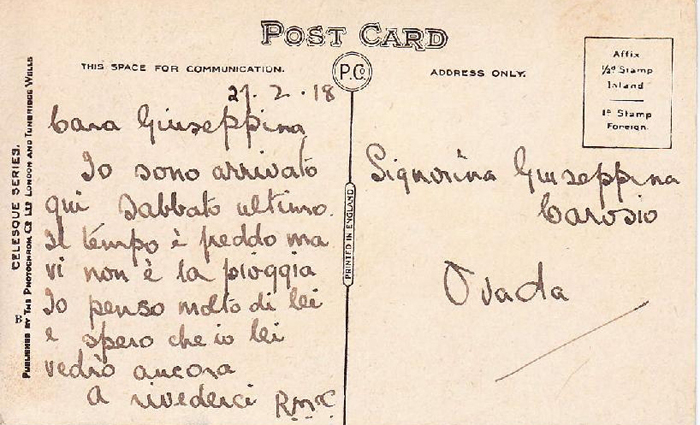 POST CARD
THIS SPACE FOR COMMUNICATION.
P.Co
ADDRESS ONLY.
Affix
½d Stamp
Inland
1d Stamp
Foreign.
CELESQUE SERIES.
PUBLISHED BY THE PHOTOCHROM CO LTD LONDON AND TUNBRIDGE WELLS
PRINTED IN ENGLAND
27.2.18
Cara Giuseppina
Io sono arrivato
qui Sabbato ultimo.
Il tempo è freddo ma
vi non è la pioggia
Io penso molto di lei
e spero che io lei
vedrò ancora
A rivederci RMcC
Signorina Giuseppina
Carosio
Ovada